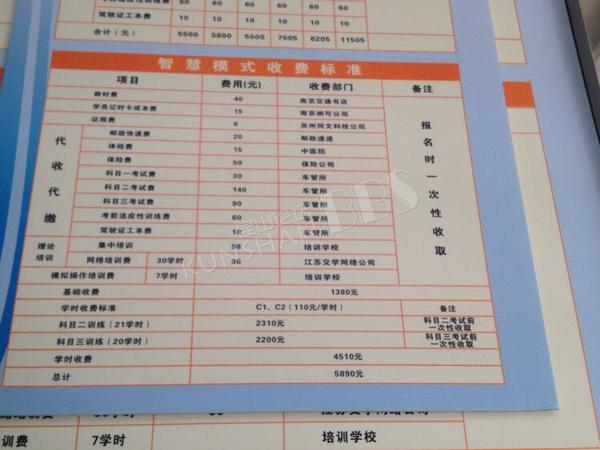 驾驶证工本费 10 10 10 10 10 10
合计（元） 5500 5800 5500 7505 6205 11505
智慧模式收费标准
项目 费用(元) 收费部门 备注
教材费 40 南京交通书店
学员记时卡成本费 15 南京纳可公司
证照费 6 苏州同文科技公司
代收代缴
邮政快递费 20 邮政速递
体检费 15 中医院
保险费 50 保险公司
科目一考试费 30 车管所
科目二考试费 140 车管所
科目三考试费 90 车管所
考前适应性训练费 60 车管所
驾驶证工本费 10 车管所
报名时一次性收取
理论培训
集中培训 98 培训学校
网络培训费 30学时 36 江苏交学网络公司
模拟操作培训费 7学时 培训学校
基础收费 1380元
学时收费标准 C1、C2（110元/学时） 备注
科目二训练（21学时） 2310元 科目二考试前一次性收取
科目三训练（20学时） 2200元 科目三考试前一次性收取
学时收费 4510元
总计 5890元
KUNSHAN BBS
训费 7学时 培训学校